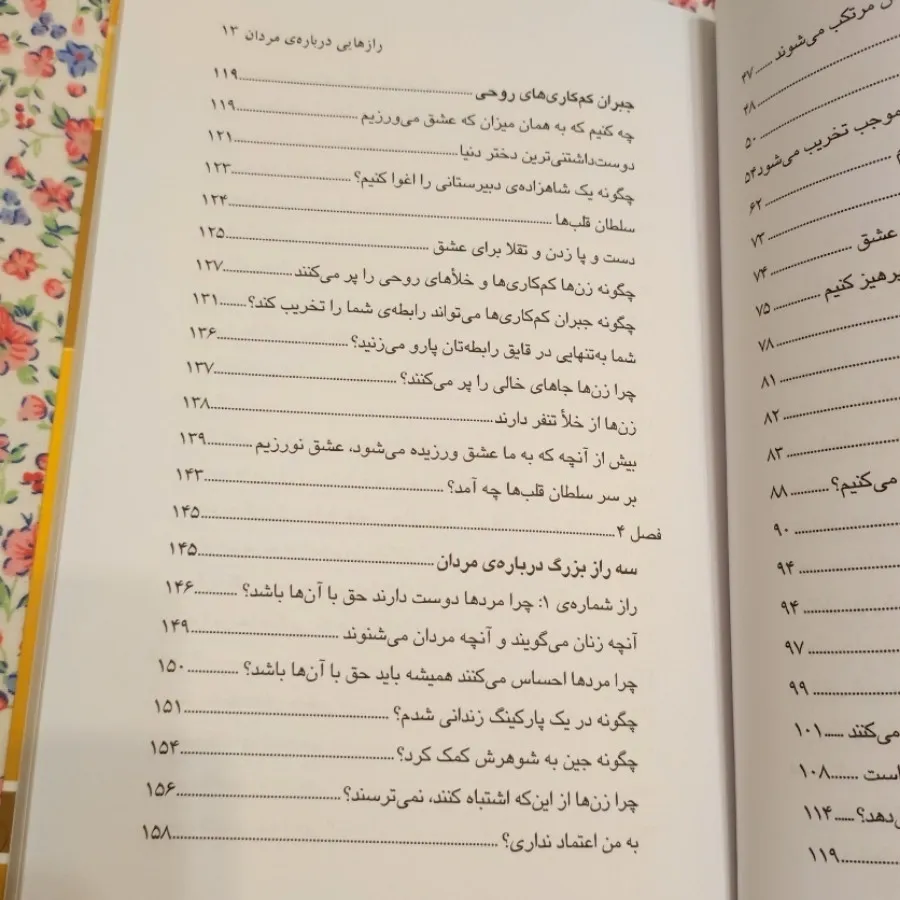 رازهایی درباره‌ی مردان ۱۳
جبران کم‌کاری‌های روحی ........ ۱۱۹
چه کنیم که به همان میزان که عشق می‌ورزیم ........ ۱۱۹
دوست‌داشتنی‌ترین دختر دنیا ........ ۱۲۱
چگونه یک شاهزاده‌ی دبیرستانی را اغوا کنیم؟ ........ ۱۲۳
سلطان قلب‌ها ........ ۱۲۴
دست و پا زدن و تقلا برای عشق ........ ۱۲۵
چگونه زن‌ها کم‌کاری‌ها و خلأهای روحی را پر می‌کنند ........ ۱۲۷
چگونه جبران کم‌کاری‌ها می‌تواند رابطه‌ی شما را تخریب کند؟ ........ ۱۳۱
شما به‌تنهایی در قایق رابطه‌تان پارو می‌زنید؟ ........ ۱۳۶
چرا زن‌ها جاهای خالی را پر می‌کنند؟ ........ ۱۳۷
زن‌ها از خلأ تنفر دارند ........ ۱۳۸
بیش از آنچه که به ما عشق ورزیده می‌شود، عشق نورزیم ........ ۱۳۹
بر سر سلطان قلب‌ها چه آمد؟ ........ ۱۴۳
فصل ۴ ........ ۱۴۵
سه راز بزرگ درباره‌ی مردان ........ ۱۴۵
راز شماره‌ی ۱: چرا مردها دوست دارند حق با آن‌ها باشد؟ ........ ۱۴۶
آنچه زنان می‌گویند و آنچه مردان می‌شنوند ........ ۱۴۹
چرا مردها احساس می‌کنند همیشه باید حق با آن‌ها باشد؟ ........ ۱۵۰
چگونه در یک پارکینگ زندانی شدم؟ ........ ۱۵۱
چگونه جین به شوهرش کمک کرد؟ ........ ۱۵۴
چرا زن‌ها از این‌که اشتباه کنند، نمی‌ترسند؟ ........ ۱۵۶
به من اعتماد نداری؟ ........ ۱۵۸
مرتکب می‌شوند ........ ۴۷
۴۸
۵۰
موجب تخریب می‌شور ۵۴
۶۲
۷۳
عشق ........ ۷۴
پرهیز کنیم ........ ۷۵
۷۸
۸۱
۸۲
۸۳
می‌کنیم؟ ........ ۸۸
۹۰
۹۴
۹۴
۹۷
۹۹
می‌کنند ........ ۱۰۱
است ........ ۱۰۸
۱۱۴
۱۱۹